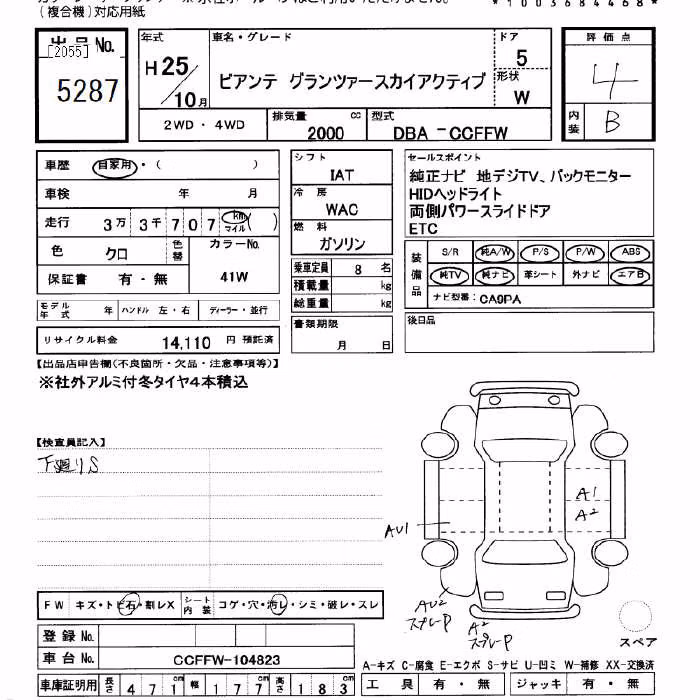 (複合機)対応用紙
*1003684468*
出品 No.
[2055]
5287
年式 H25/10月
車名・グレード
ビアンテ グランツァースカイアクティブ
ドア 5
形状 W
評価点 4
内装 B
2WD・4WD
排気量 2000 cc
型式 DBA-CCFFW
車歴 自家用・( )
車検 年 月
走行 3万 3千 7 0 7 km マイル ( )
色 クロ
色替
カラーNo. 41W
保証書 有・無
モデル年式 年 ハンドル 左・右 ディーラー・並行
リサイクル料金 14,110 円 預託済
シフト IAT
冷房 WAC
燃料 ガソリン
乗車定員 8 名
積載量 kg
総重量 kg
書類期限 月 日
セールスポイント
純正ナビ 地デジTV、バックモニター
HIDヘッドライト
両側パワースライドドア
ETC
装備品
S/R 純A/W P/S P/W ABS
純TV 純ナビ 革シート 外ナビ エアB
ナビ型番: CA9PA
後日品
【出品店申告欄(不良箇所・欠品・注意事項等)】
※社外アルミ付冬タイヤ4本積込
【検査員記入】
下廻りS
A1
A2
AU1
AU2
スプレーP
A2
スプレーP
スペア
FW キズ・トビ石・割レX
シート内装 コゲ・穴・汚レ・シミ・破レ・スレ
登録 No.
車台 No. CCFFW-104823
車庫証明用 長さ 471cm 幅 177cm 高さ 183cm
A-キズ C-腐食 E-エクボ S-サビ U-凹ミ W-補修 XX-交換済
工具 有・無 ジャッキ 有・無